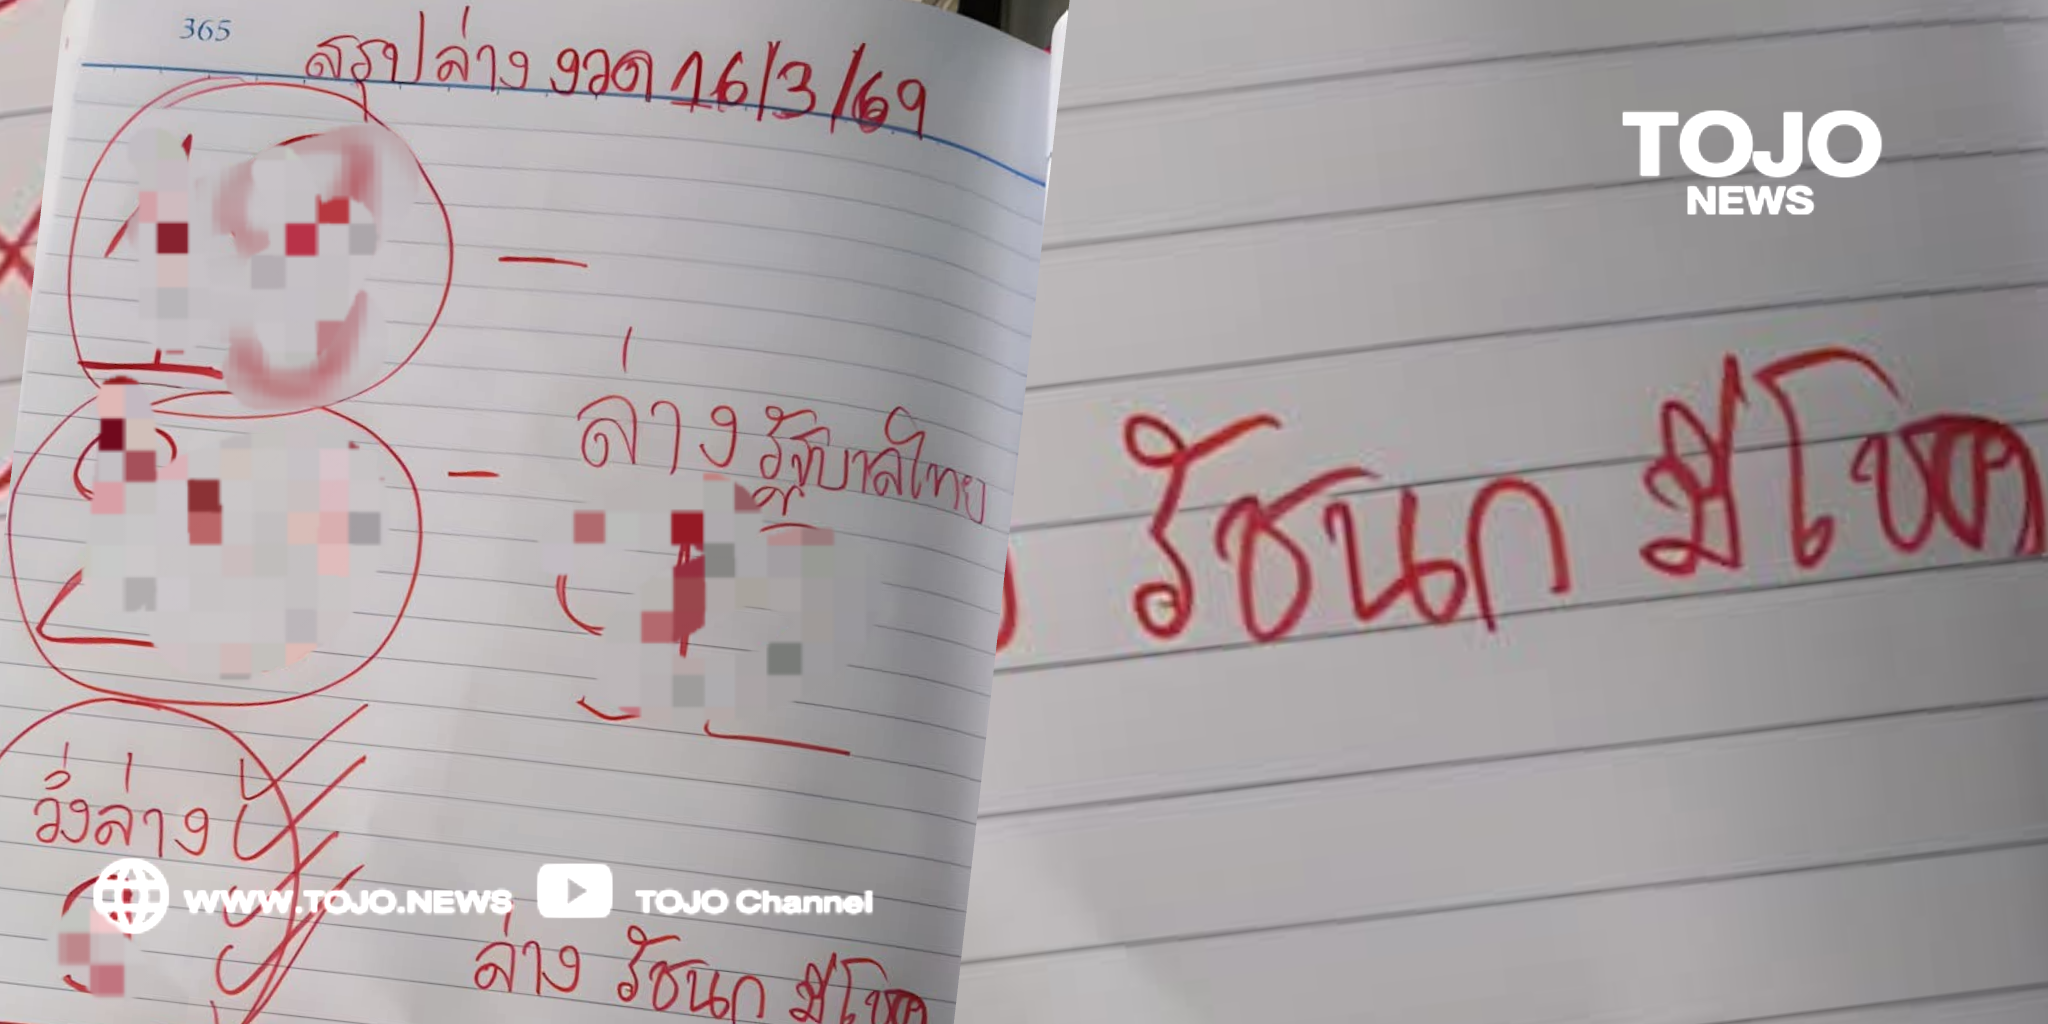 365
สรุปล่าง งวด 16/3/69
ล่าง รัฐบาลไทย
วิ่งล่าง
ล่าง รัชนก มีโชค
WWW.TOJO.NEWS
TOJO Channel
TOJO
NEWS
รัชนก มีโชค